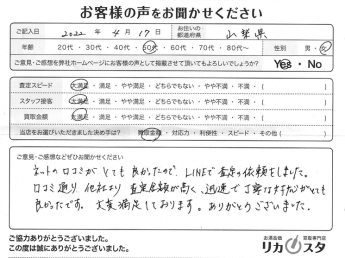 お客様の声をお聞かせください
ご記入日 2022年 4月 17日 お住いの都道府県 山梨県
年齢 20代・30代・40代・50代・60代・70代・80代〜 性別 男・女
ご意見・ご感想を弊社ホームページにお客様の声として掲載させて頂いてもよろしいでしょうか? Yes・No
査定スピード 大満足・満足・やや満足・どちらでもない・やや不満・不満・( )
スタッフ接客 大満足・満足・やや満足・どちらでもない・やや不満・不満・( )
買取金額 大満足・満足・やや満足・どちらでもない・やや不満・不満・( )
当店をお選びいただきました決め手は? 買取金額・対応力・利便性・スピード・その他( )
ご意見・ご感想などぜひお聞かせください
ネットの口コミがとても良かったので、LINEで査定の依頼をしました。
口コミ通り、他社より査定金額が高く、迅速で丁寧な対応がとても
良かったです。大変満足しております。ありがとうございました。
ご協力ありがとうございました。
この度は誠にありがとうございました。
お酒高価買取専門店
リカスタ